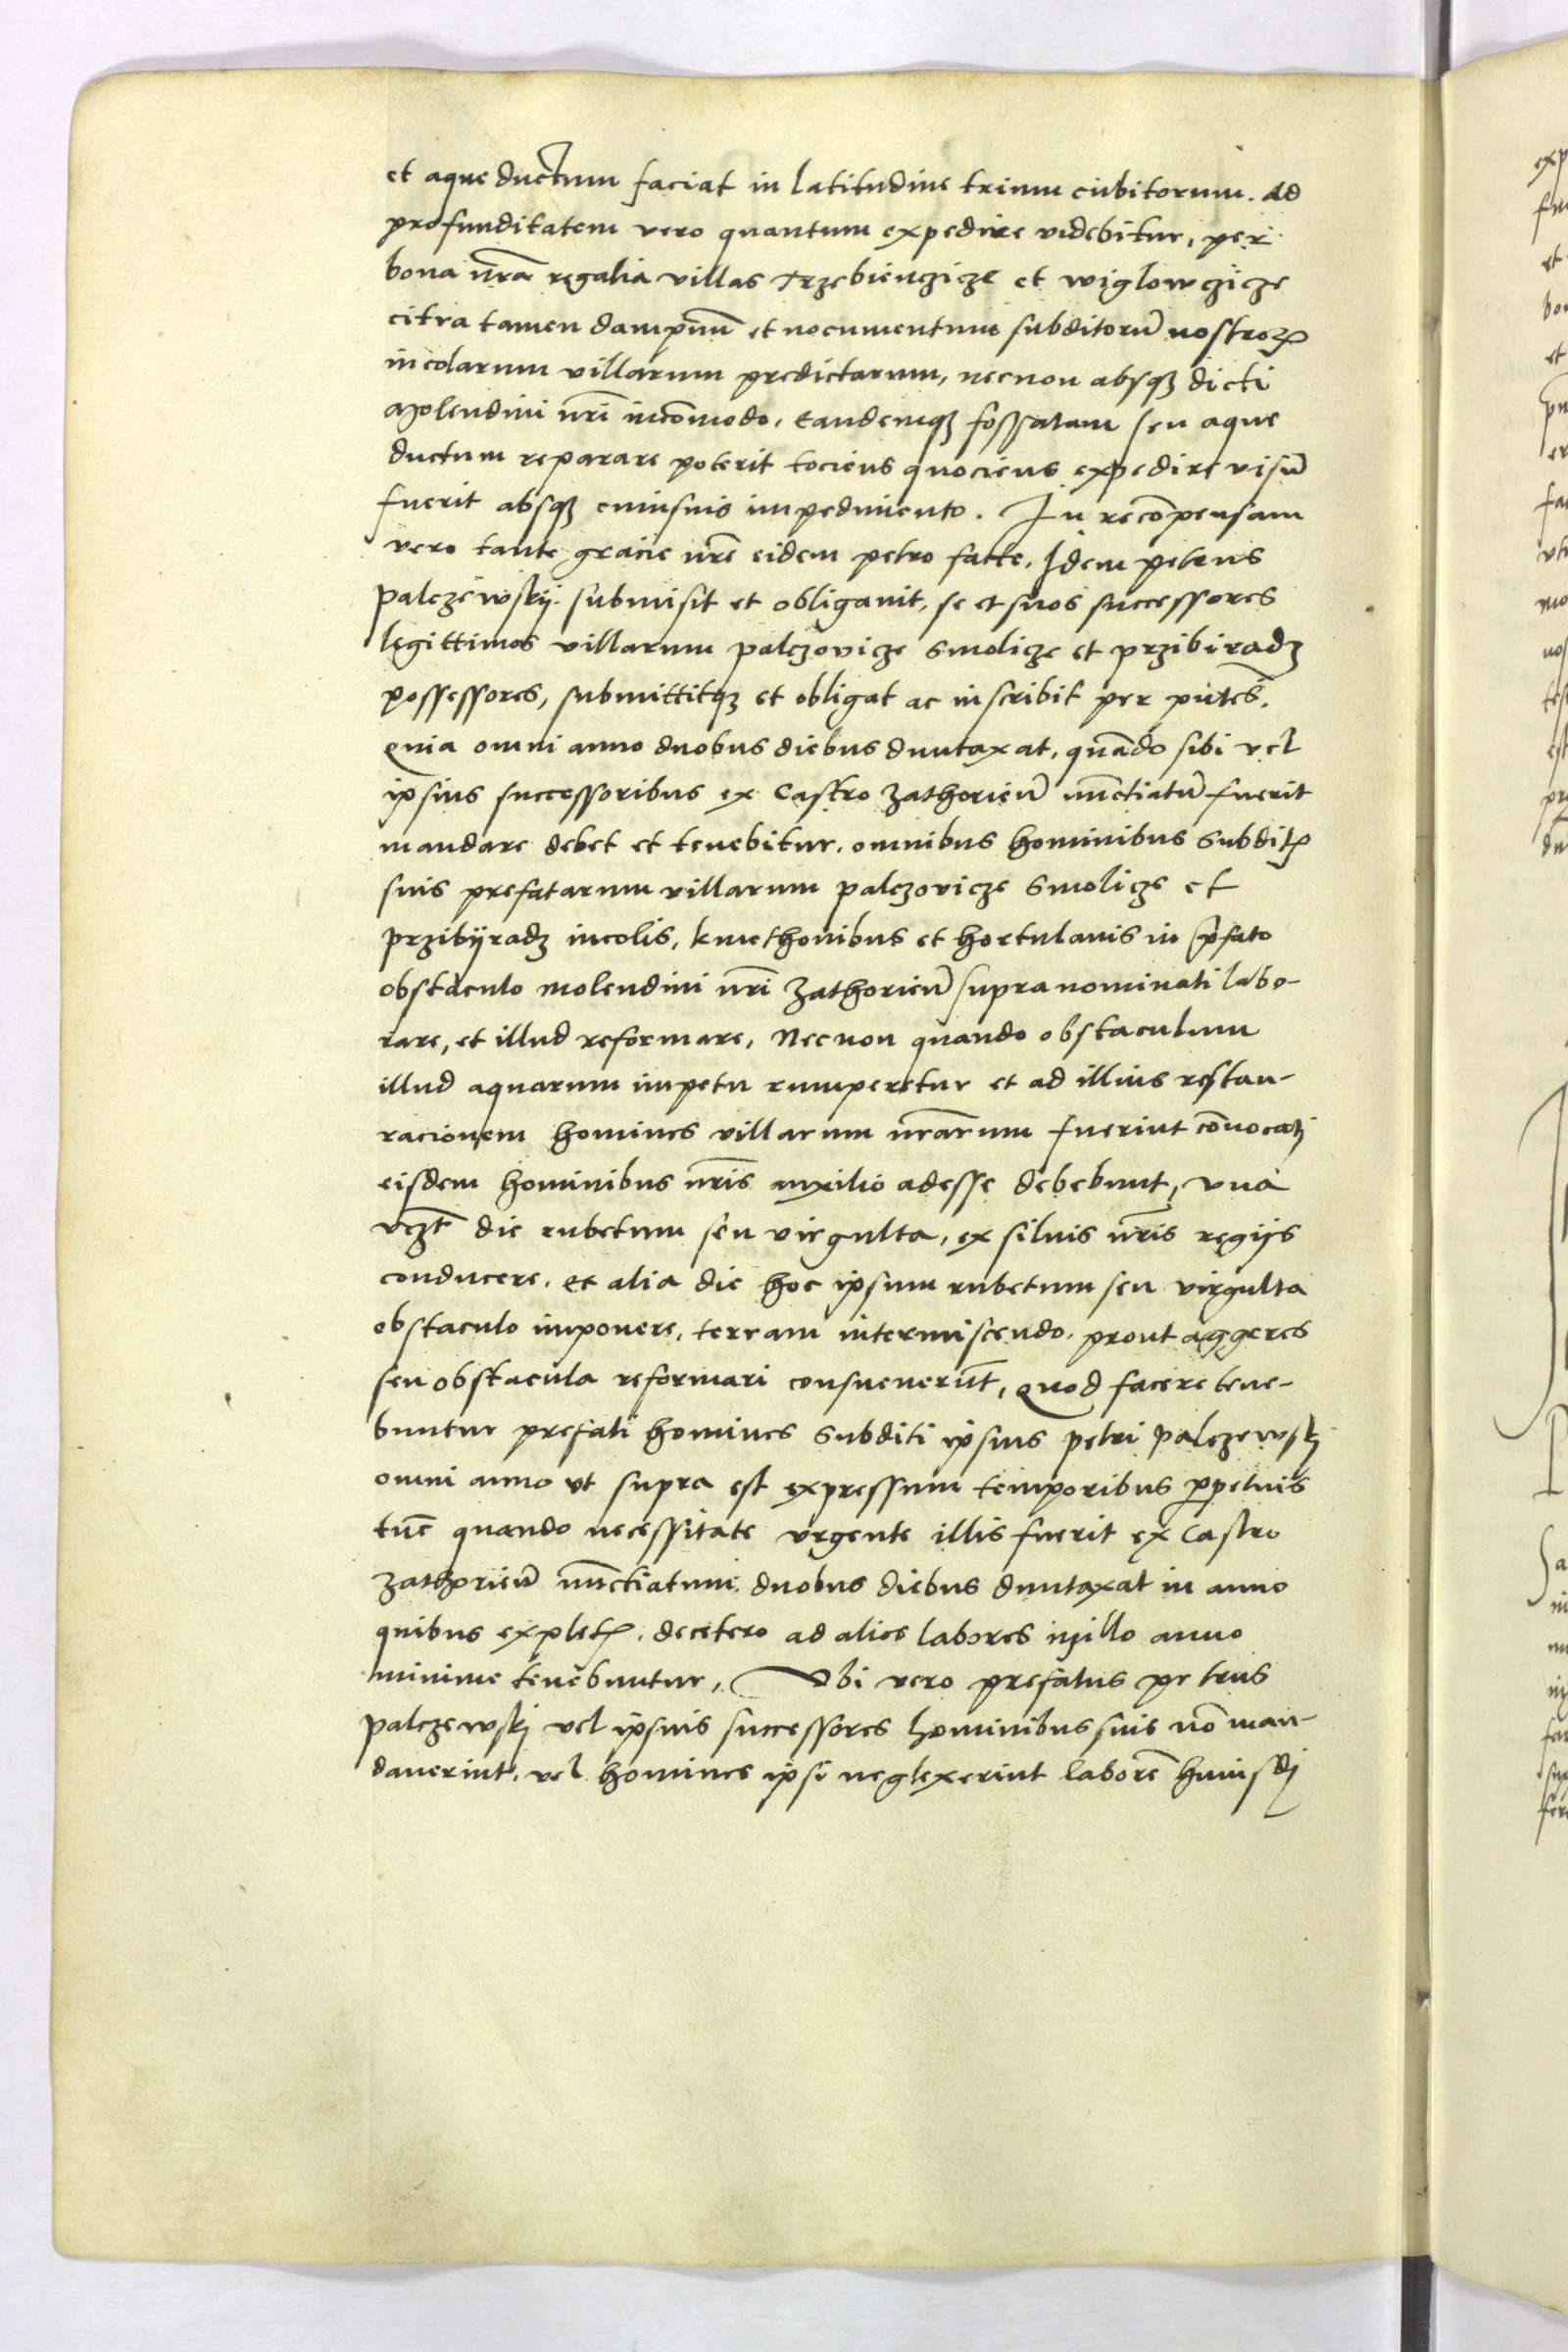 et aque ductum faciat in latitudine trium cubitorum. Ad
profunditatem vero quantum expedire videbitur, per
bona nr̄a regalia villas Trzebienczicze et wiglowczicze
citra tamen dampnū et nocumentum subditorū nostroꝝ
incolarum villarum predictarum, necnon absqꝫ dicti
Molendini nr̄i incōmodo, eandemqꝫ fossatam seu aque
ductum reparare poterit tociens quociens expedire visū
fuerit absqꝫ cuiusuis impedimento. In recōpensam
vero tante gracie nr̄e eidem petro facte, Idem petrus
palczewskij submisit et obligauit, se et suos successores
legittimos villarum palczovicze Smolicze et przibiradz
possessores, submittitqꝫ et obligat ac inscribit per pn̄tes,
Quia omni anno duobus diebus duntaxat, quādo sibi vel
ipsius successoribus ex Castro Zathorieñ nūctiatū fuerit
mandare debet et tenebitur, omnibus hominibus Subditꝭ
suis prefatarum villarum palczovicze Smolicze et
przibijradz incolis, kmethonibus et hortulanis in p̄fato
obstaculo molendini nr̄i Zathorieñ supra nominati labo-
rare, et illud reformare, Necnon quando obstaculum
illud aquarum impetu rumperetur et ad illius restau-
racionem homines villarum nr̄arum fuerint cōuocati
eisdem hominibus nr̄is auxilio adesse debebunt, vna
vezt̄ die rubetum seu virgulta, ex siluis nr̄is regijs
conducere, et alia die hoc ipsum rubetum seu virgulta
obstaculo imponere, terram intermiscendo, prout aggeres
seu obstacula reformari consueuerūt, Quod facere tene-
buntur prefati homines Subditi ipsius petri palczewskj
omni anno vt supra est expressum temporibus ꝑpetuis
tūc quando necessitate vrgente illis fuerit ex Castro
Zathorieñ nūctiatum duobus diebus duntaxat in anno
quibus expletꝭ, decetero ad alios labores in illo anno
minime tenebuntur, Vbi vero prefatus petrus
palczewskj vel ipsius successores hominibus suis nō man-
dauerint, vel homines ipsi neglexerint laborē huiusdj